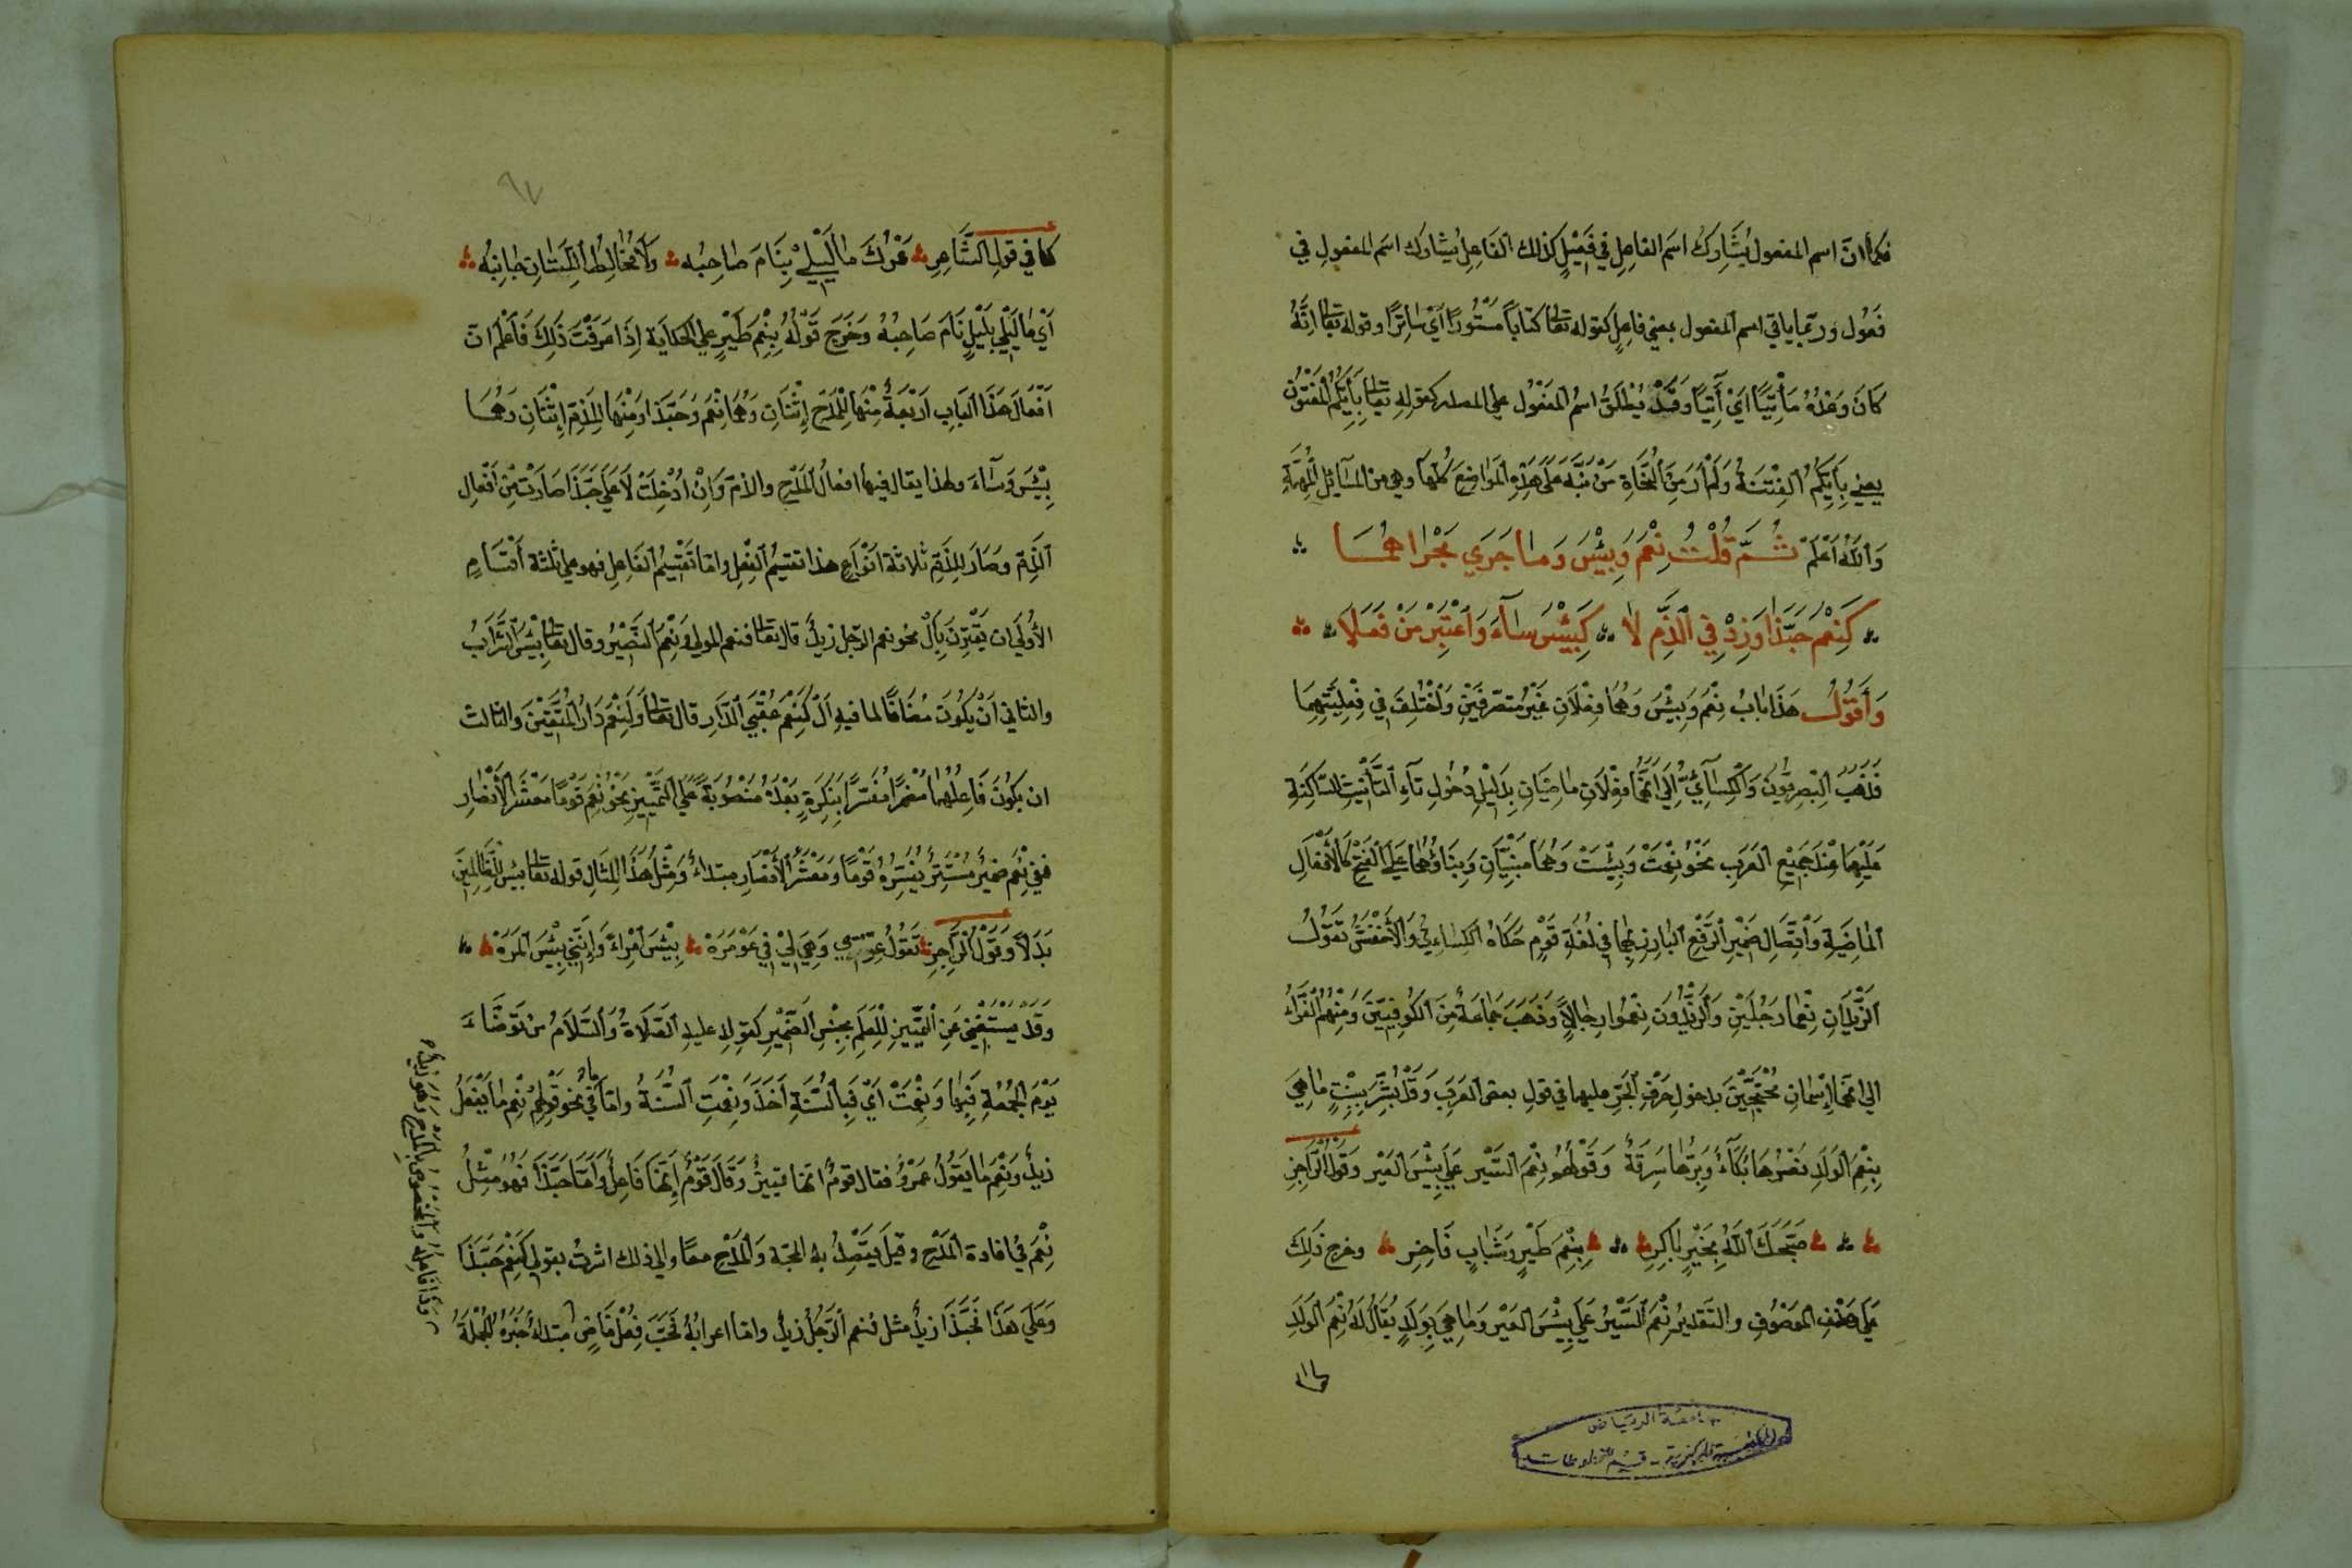 فكما ان اسم المفعول يُشَارِكُ اسم الفاعِل في فَعِيْلٍ كذلك الفَاعِلُ يُشارك اسم المفعولِ في
فَعُول وربّما ياتي اسم المفعول بمعني فاعِلٍ كقوله تعالى كتاباً مَسْتُوراً اَيْ سَاتِرًا وقوله تعالى اِنّهُ
كَانَ وَعْدُهُ مَأْتِيًّا اَيْ آتِيًا وَقَدْ يُطْلَقُ اسمُ المَفعُول على المصدر كقولِهِ تعالى بِأَيِّكُمُ الْمَفْتُونُ
يعني بِأَيِّكُمُ الفِتْنَةُ وَلَمْ اَرَ مِنَ النُّحَاةِ مَنْ نَبَّهَ عَلَى هَذِهِ المَوَاضِعِ كُلِّهَا وهي من المسَائِلِ المُهِمَّةِ
وَاللهُ اَعْلَم ثُمَّ قُلْتُ نِعْمَ وَبِئْسَ وَمَا جَرَي مَجْرَاهُمَا
كَنِعْمَ حَبَّذَا وَزِدْ فِي الذَّمِّ لَا كَبِئْسَ سَآءَ وَاعْتَبِرْ مَنْ فَعَلَا
وَأَقُولُ هَذَا بَابُ نِعْمَ وَبِئْسَ وَهُمَا فِعْلَانِ غَيْرُ مُتَصَرِّفَيْنِ وَاخْتُلِفَ فِي فِعْلِيَّتِهِمَا
فَذَهَبَ البَصْرِيُّونَ وَالكِسَآئِيُّ اِلَي اَنَّهُمَا فِعْلَانِ مَاضِيَانِ بِدَلِيْلِ دُخُولِ تَآءِ التَّأنِيْثِ السَّاكِنَةِ
عَلَيْهِمَا عِنْدَ جَمِيْعِ العَرَبِ نَحْوُ نِعْمَتْ وَبِئْسَتْ وَهُمَا مَبْنِيَّانِ وَبِنَاؤُهُمَا عَلَي الفَتْحِ كَالأَفْعَالِ
المَاضِيَةِ وَاتِّصَالِ ضَمِيْرِ الرَّفْعِ البَارِزِ بِهِمَا فِي لُغَةِ قَوْمٍ حَكَاهُ الكِسَاءِيُّ وَالأَخْفَشُ تَقُولُ
الزَّيْدَانِ نِعْمَا رَجُلَيْنِ وَالزَّيْدُونَ نِعْمُوا رِجَالاً وَذَهَبَ جَمَاعَةٌ مِنَ الكُوفِيِّيْنَ وَمِنْهُمُ الفَرَّاءُ
الي انهما اِسْمَانِ مُحْتَجِّيْنَ بدخولِ حَرْفِ الجَرِّ عليهما في قولِ بعض العَرَبِ وَقَدْ بُشِّرَ بِبِنْتٍ مَا هِيَ
بِنِعْمَ الوَلَدِ نَصْرُهَا بُكَآءٌ وَبِرُّهَا سَرِقَةٌ وَقَوْلُهُمْ نِعْمَ السَّيْر عَلَي بِئْسَ العَيْر وَقَوْلُ الرَّاجِزِ
صَبَّحَكَ اللهُ بِخَيْرٍ بَاكِرِ بِنِعْمَ طَيْرٍ وَشَبَابٍ فَاخِرِ وخرج ذلِكَ
عَلَي حَذْفِ المَوصُوفِ والتقدير نِعْمَ السَّيْرُ عَلَي بِئْسَ العَيْر وَمَا هِيَ بِوَلَدٍ يُقَالُ لَهُ نِعْمَ الوَلَدِ
كما
جامعة الرياض
المكتبة المركزية - قسم المخطوطات
٩٧
كما في قول الشّاعِرِ عَمْرُكَ مَا لَيْلِي بِنَامَ صَاحِبُه وَلَا مُخَالِطِ اللِّيَانِ جَانِبُه
اَيْ مَا لَيْلِي بِلَيْلٍ نَامَ صَاحِبُهُ وَخَرَجَ قَوْلُهُ بِنِعْمَ طَيْرٍ علي الحكايَةِ اِذَا عَرَفْتَ ذَلِكَ فَاعْلَمْ انّ
اَفْعَالَ هَذَا البَابِ اَرْبَعَةٌ مِنْهَا لِلْمَدْحِ اِثْنَانِ وَهُمَا نِعْمَ وَحَبَّذَا وَمِنْهَا لِلذَّمِّ اِثْنَانِ وَهُمَا
بِئْسَ وَسَآءَ ولهذا يقال فيها افعالُ المَدْحِ والذّمّ وَاِنْ اُدْخِلَتْ لَا عَلَي حَبَّذَا صَارَتْ مِنْ اَفْعَالِ
الذَّمِّ وَصَارَ لِلذَّمِّ ثلاثة اَنْوَاعٍ هذا تقسيمُ الفِعْلِ واما تَقْسِيْمُ الفَاعِل فهو علي ثلثة اَقْسَامٍ
الأوُلَي ان يَقْتَرِنَ بِاَلْ نحو نعم الرّجل زيدٌ قال تعالى فنعم المولي وَنِعْمَ النَّصِيْرُ وقال تعالى بِئْسَ الشَّرَابُ
والثاني اَنْ يَكُونَ مُضَافًا لما فيهِ اَلْ كَنِعْمَ عُقْبَي الدَّارِ قال تعالى وَلَنِعْمَ دَارُ المُتَّقِيْنَ والثالث
ان يكُونَ فَاعِلُهُمَا مُضْمَرًا مُفَسَّرًا بِنَكِرَةٍ بَعْدَهُ مَنْصُوبَةً عَلَي التَّمْيِيْزِ نَحْوُ نِعْمَ قَوْمًا مَعْشَرُ الأَنْصَارِ
ففي نِعْمَ ضَمِيْرٌ مُسْتَتِرٌ يُفَسِّرُهُ قَوْمًا وَمَعْشَرُ الأَنْصَارِ مبتداءٌ وَمِثْلُ هَذَا المِثَالِ قوله تعالى بِئْسَ لِلظَّالِمِيْنَ
بَدَلاً وَقَوْلُ الرَّاجِزِ تَقُولُ عِرْسِي وَهِيَ لِيْ فِي عَوْمَرَهْ بِئْسَ امْرَاءً وَاِنَّنِي بِئْسَ المَرَهْ
وَقَدْ يُسْتَغْنَي عَنِ التَّمْيِيْزِ لِلْعِلْمِ بِجِنْسِ الضَّمِيْرِ كقولِهِ عليهِ الصَّلَاةُ وَالسَّلَامُ مَنْ تَوَضَّاءَ
يَوْمَ الجُمُعَةِ فَبِهَا وَنِعْمَتْ اَيْ فَبِالسُّنَّةِ اَخَذَ وَنِعْمَتِ السُّنَّةُ واما مَا فِي نحو قَوْلِهِمْ نِعْمَ مَا يَفْعَلُ
زيدٌ وَنِعْمَ مَا يَقُولُ عَمْرٌو فقال قومٌ انّها تمييزٌ وَقَالَ قَوْمٌ اِنّهَا فَاعِلٌ وَاَمَّا حَبَّذَا فَهُوَ مِثْلُ
نِعْمَ في افادة المَدْحِ وقيل يَتَّصِلُ به المحبّة وَالمَدْحِ معًا والي ذلك اشرتُ بقولي كَنِعْمَ حَبَّذَا
وَعَلَي هَذَا فَحَبَّذَا زيدٌ مثل نعم الرَّجُلُ زيدٌ واما اعرابُهُ فَحَبَّ فِعْلٌ مَاضٍ مبتداءٌ خَبَرُهُ الجُمْلَةُ
وذا فاعله والمخصوص بالمدح وهو زيدٌ